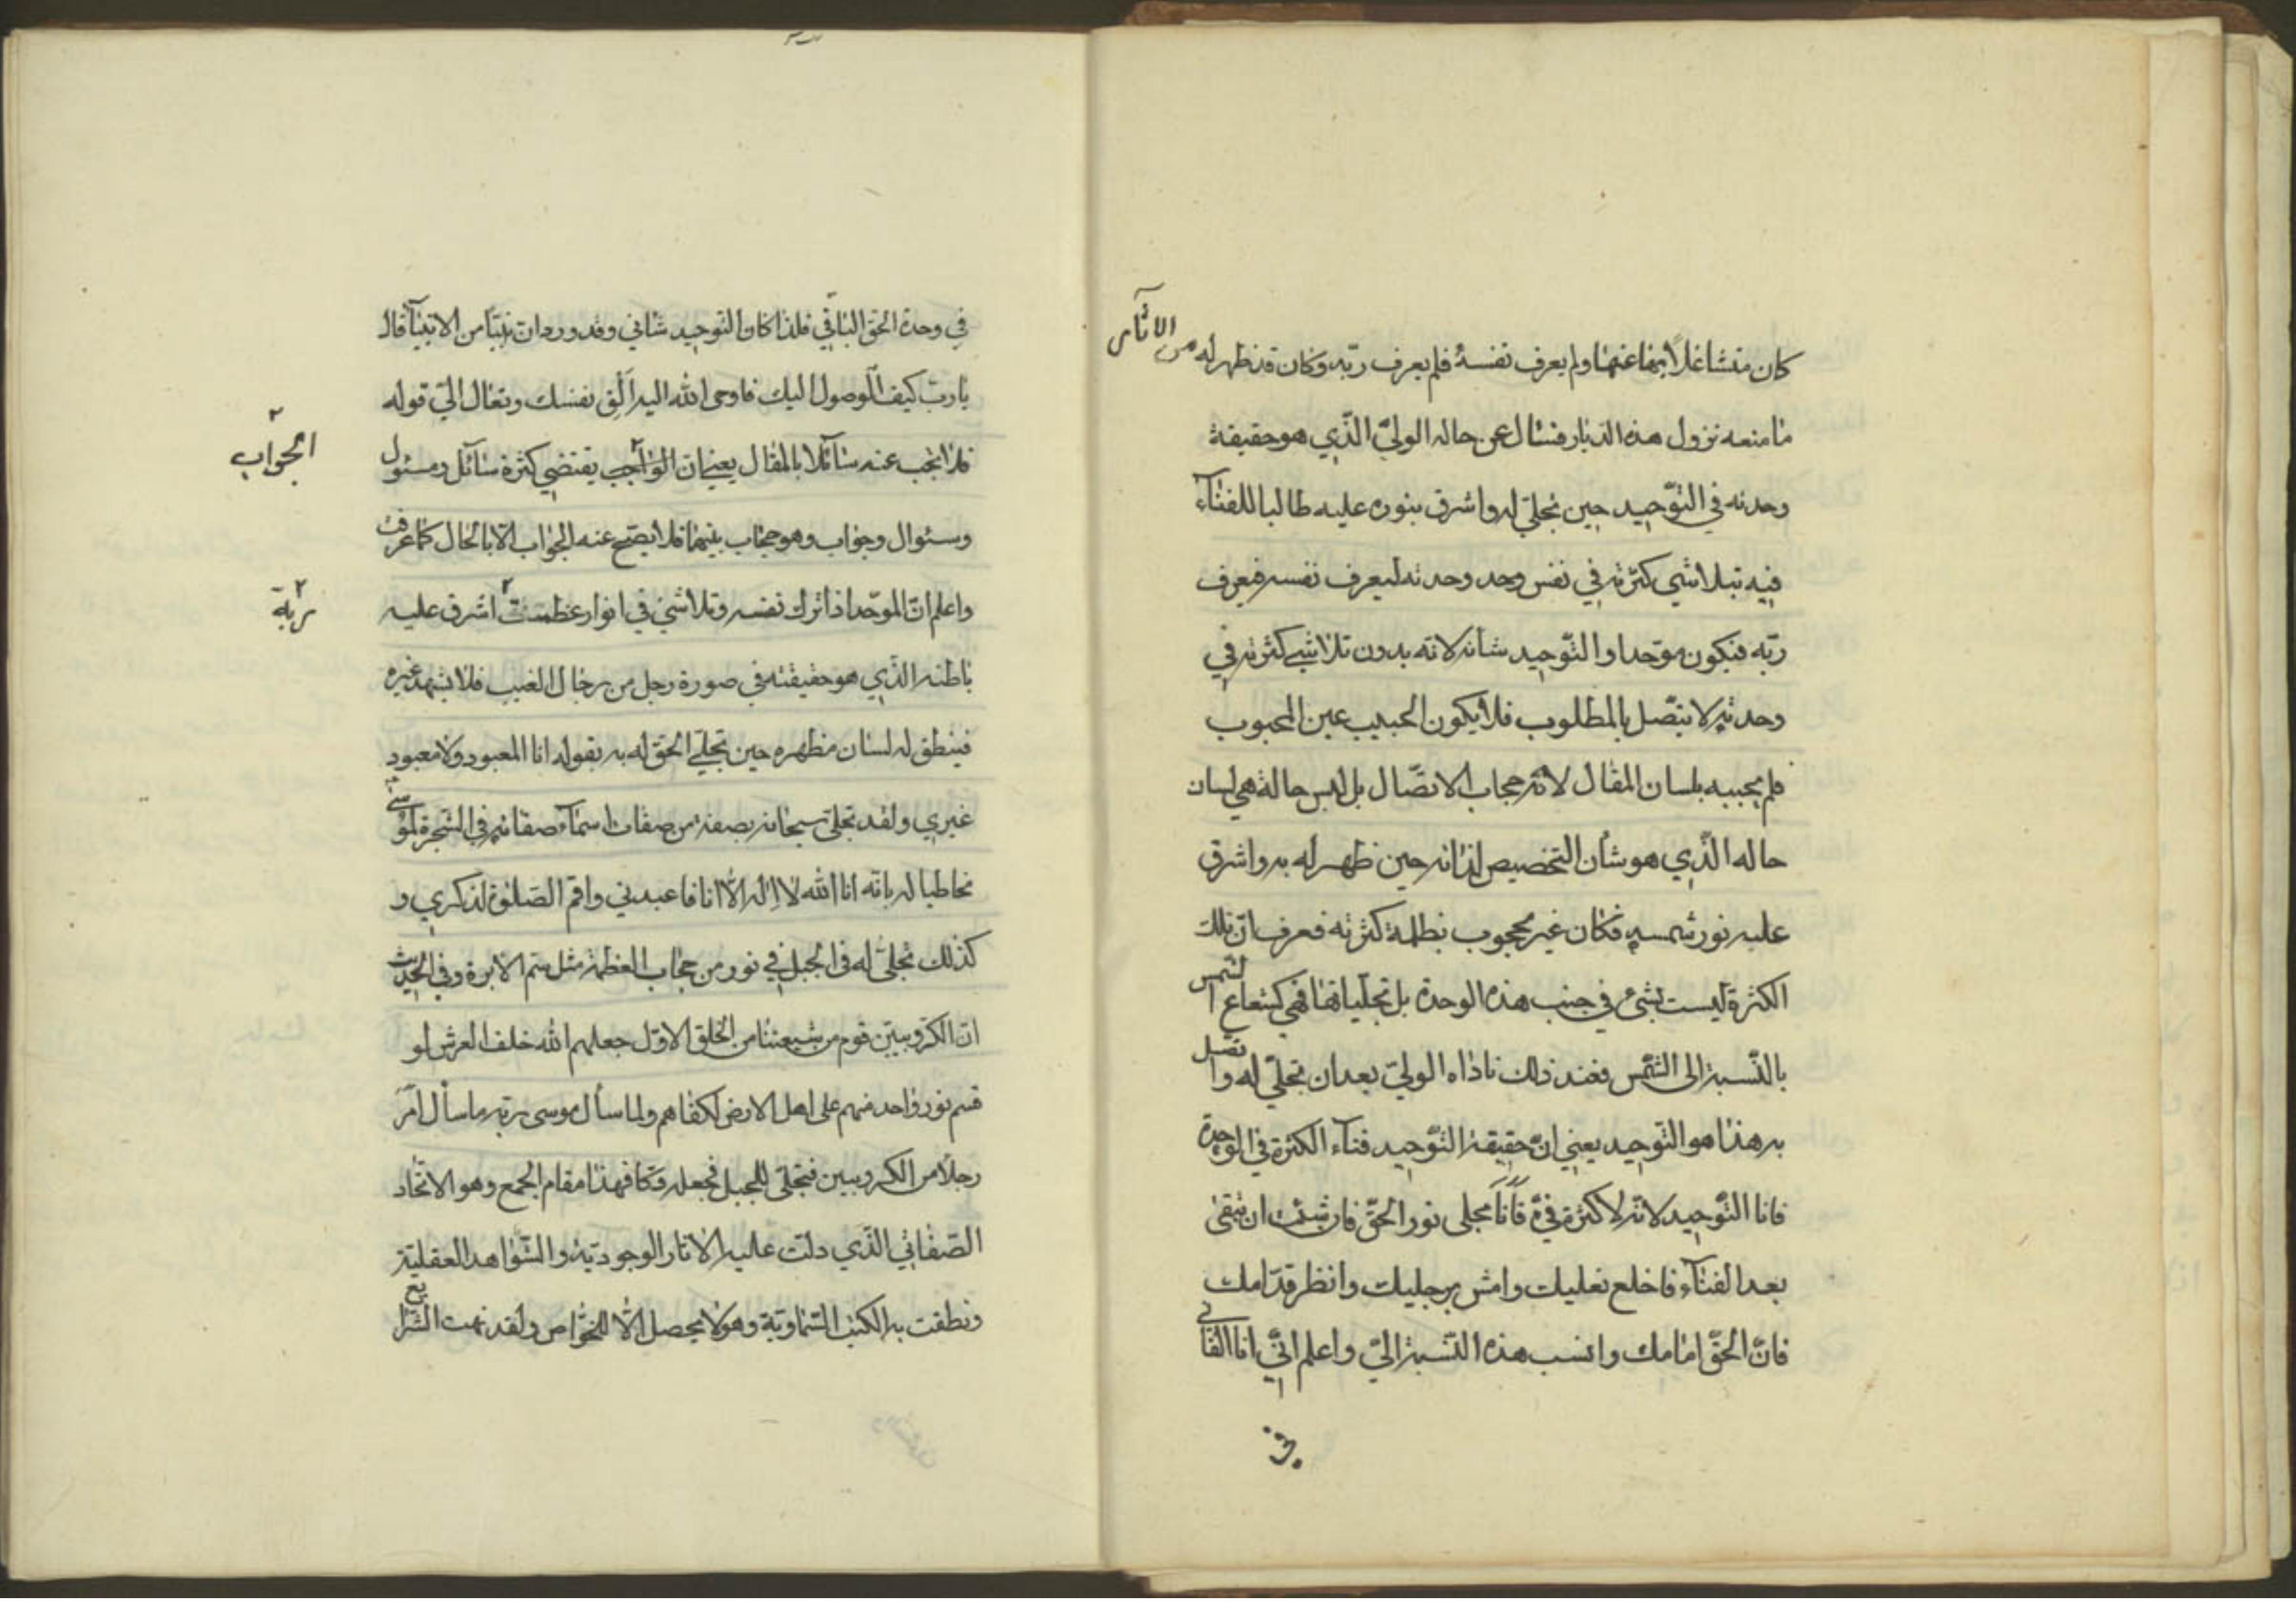 كان متشاغلاً بها عنها ولم يعرف نفسه فلم يعرف ربّه وكان قد ظهر له من الاثآر
ما منعه نزول هذه الديار فسئال عن حاله الوليّ الّذي هو حقيقة
وحدته في التّوحيد حين تجلّي له واشرق بنوره عليه طالبا للفنآء
فيه بتلاشي كثرته في نفس وحد وحدته ليعرف نفسه فيعرف
ربّه فيكون موّحدا والتّوحيد شأنه لانه بدون تلاشي كثرته في
وحدته لا يتّصل بالمطلوب فلا يكون الحبيب عين المحبوب
فلم يجيبه بلسان المقال لانّه حجاب الاتصّال بل لبس حالة هي لسان
حاله الّذي هو شأن التخصيص لذاته حين ظهر له به واشرق
عليه نور شمسه فكان غير محجوب بظلمة كثرته فعرف انّ تلك
الكثرة ليست بشئ في جنب هذه الوحدة بل تجلّياتها فهي كشعاع الشمس
بالنّسبة الى الشمس فعند ذلك ناداه الوليّ بعد ان تجلّي له واتصل
به هذا هو التوحيد يعني انّ حقيقة التّوحيد فنآء الكثرة في الوحدة
فانا التّوحيد لانّه لا كثرة فيّ فانا مجلى نور الحقّ فان شئت ان تبقى
بعد الفنآء فاخلع نعليك وامش برجليك وانظر قدّامك
فانّ الحقّ امامك وانسب هذه النّسبة اليّ واعلم انّي انا الفاني
في
في وحدة الحق الباقي فلذا كان التوحيد شاني وقد ورد ان نبيّا من الانبيآ قال
يا ربّ كيف الوصول اليك فاوحى الله اليه اَلْقِ نفسك وتعال اليّ قوله
فلا يجب عنه سآئلا بالمقال يعني ان الواجب يقتضي كثرة سآئل ومسئول
الجواب
وسئوال وجواب وهو حجاب بينهما فلا يصّح عنه الجواب الّا بالحال كما عرفت
واعلم انّ الموحّد اذا ترك نفسه وتلاشي في انوار عظمت اشرق عليه
ربه
باطنه الّذي هو حقيقته في صورة رجل من رجال الغيب فلا يشهد غيره
فينطق له لسان مظهره حين تجلّي الحق له به بقوله انا المعبود ولا معبود
غيري ولقد تجلّى سبحانه بصفة من صفات اسمآء صفاته في الشجرة لموسى
مخاطبا له بانّه انا الله لا اله الّا انا فاعبدني واقم الصّلوة لذكري و
كذلك تجلّى له في الجبل في نور من حجاب العظمة مثل سم الابرة وفي الحديث
انّ الكرّوبيّين قوم من شيعتنا من الخلق الاوّل جعلهم الله خلف العرش لو
قسم نور واحد منهم على اهل الارض لكفاهم ولما سأل موسى ربّه ما سأل امر
رجلًا من الكروبيين فتجلّى للجبل فجعله دكّا فهذا مقام الجمع وهو الاتحاد
الصّفاتي الّذي دلت عليه الاثار الوجوديّة والشّواهد العقليّة
ونطقت به الكتب السّماويّة وهو لا يحصل الّا للخواص ولقد نهت الشرايع